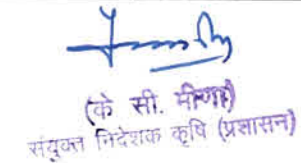 (के सी. मीणा)
संयुक्त निदेशक कृषि (प्रशासन)